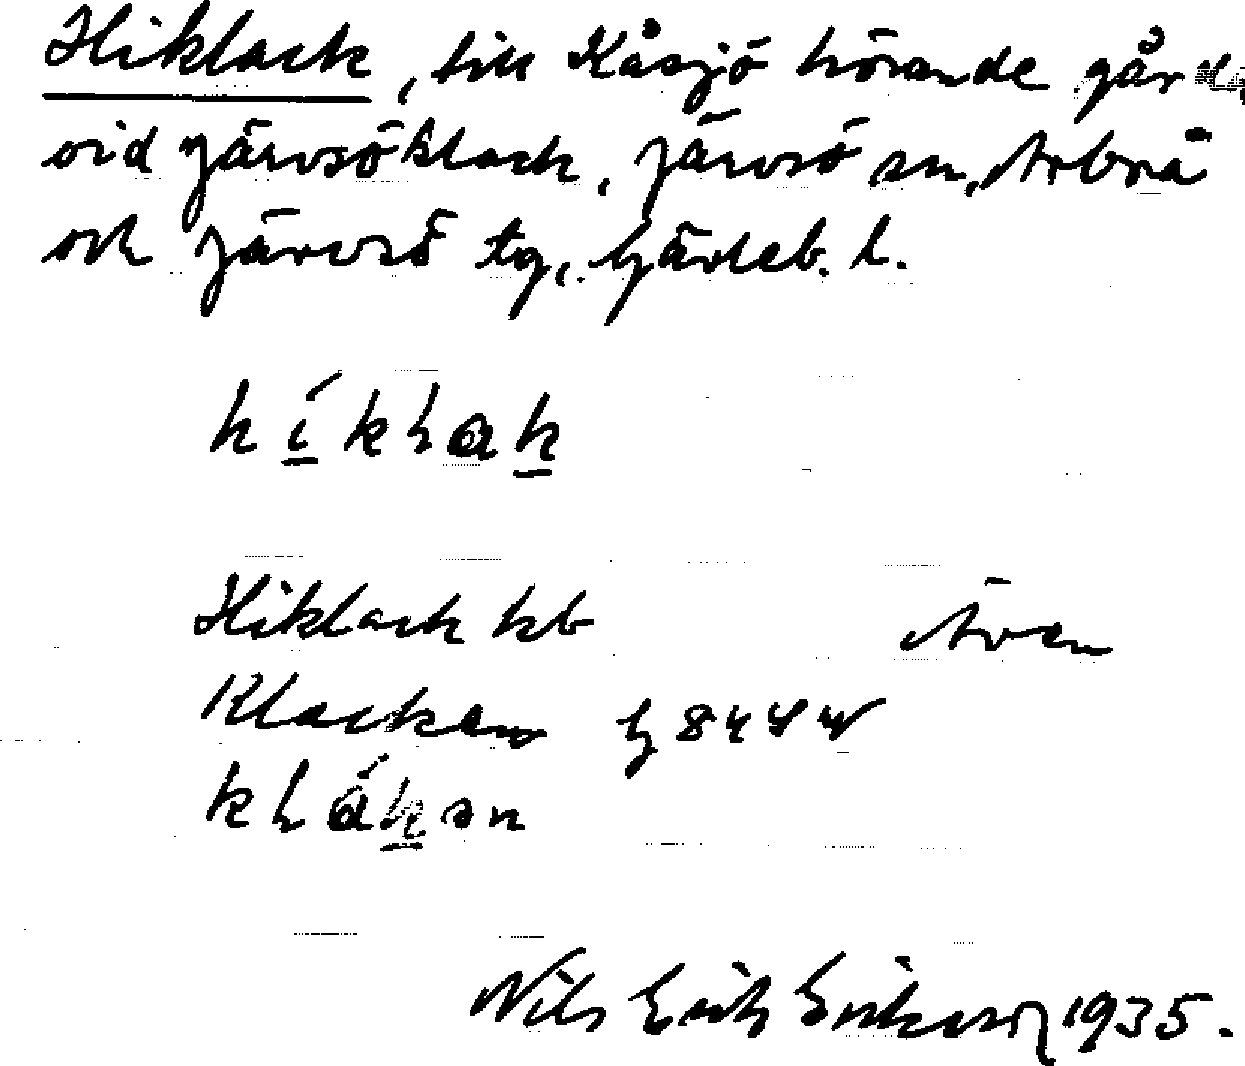 Hiklack, till Kåsjö hörande gård
vid Järvsöklack, Järvsö sn, Arbrå
och Järvsö tg, Gävleb. l.
híklak
Hiklack kb Även
Klacken
klákən
Nils Erik Eriksson 1935.